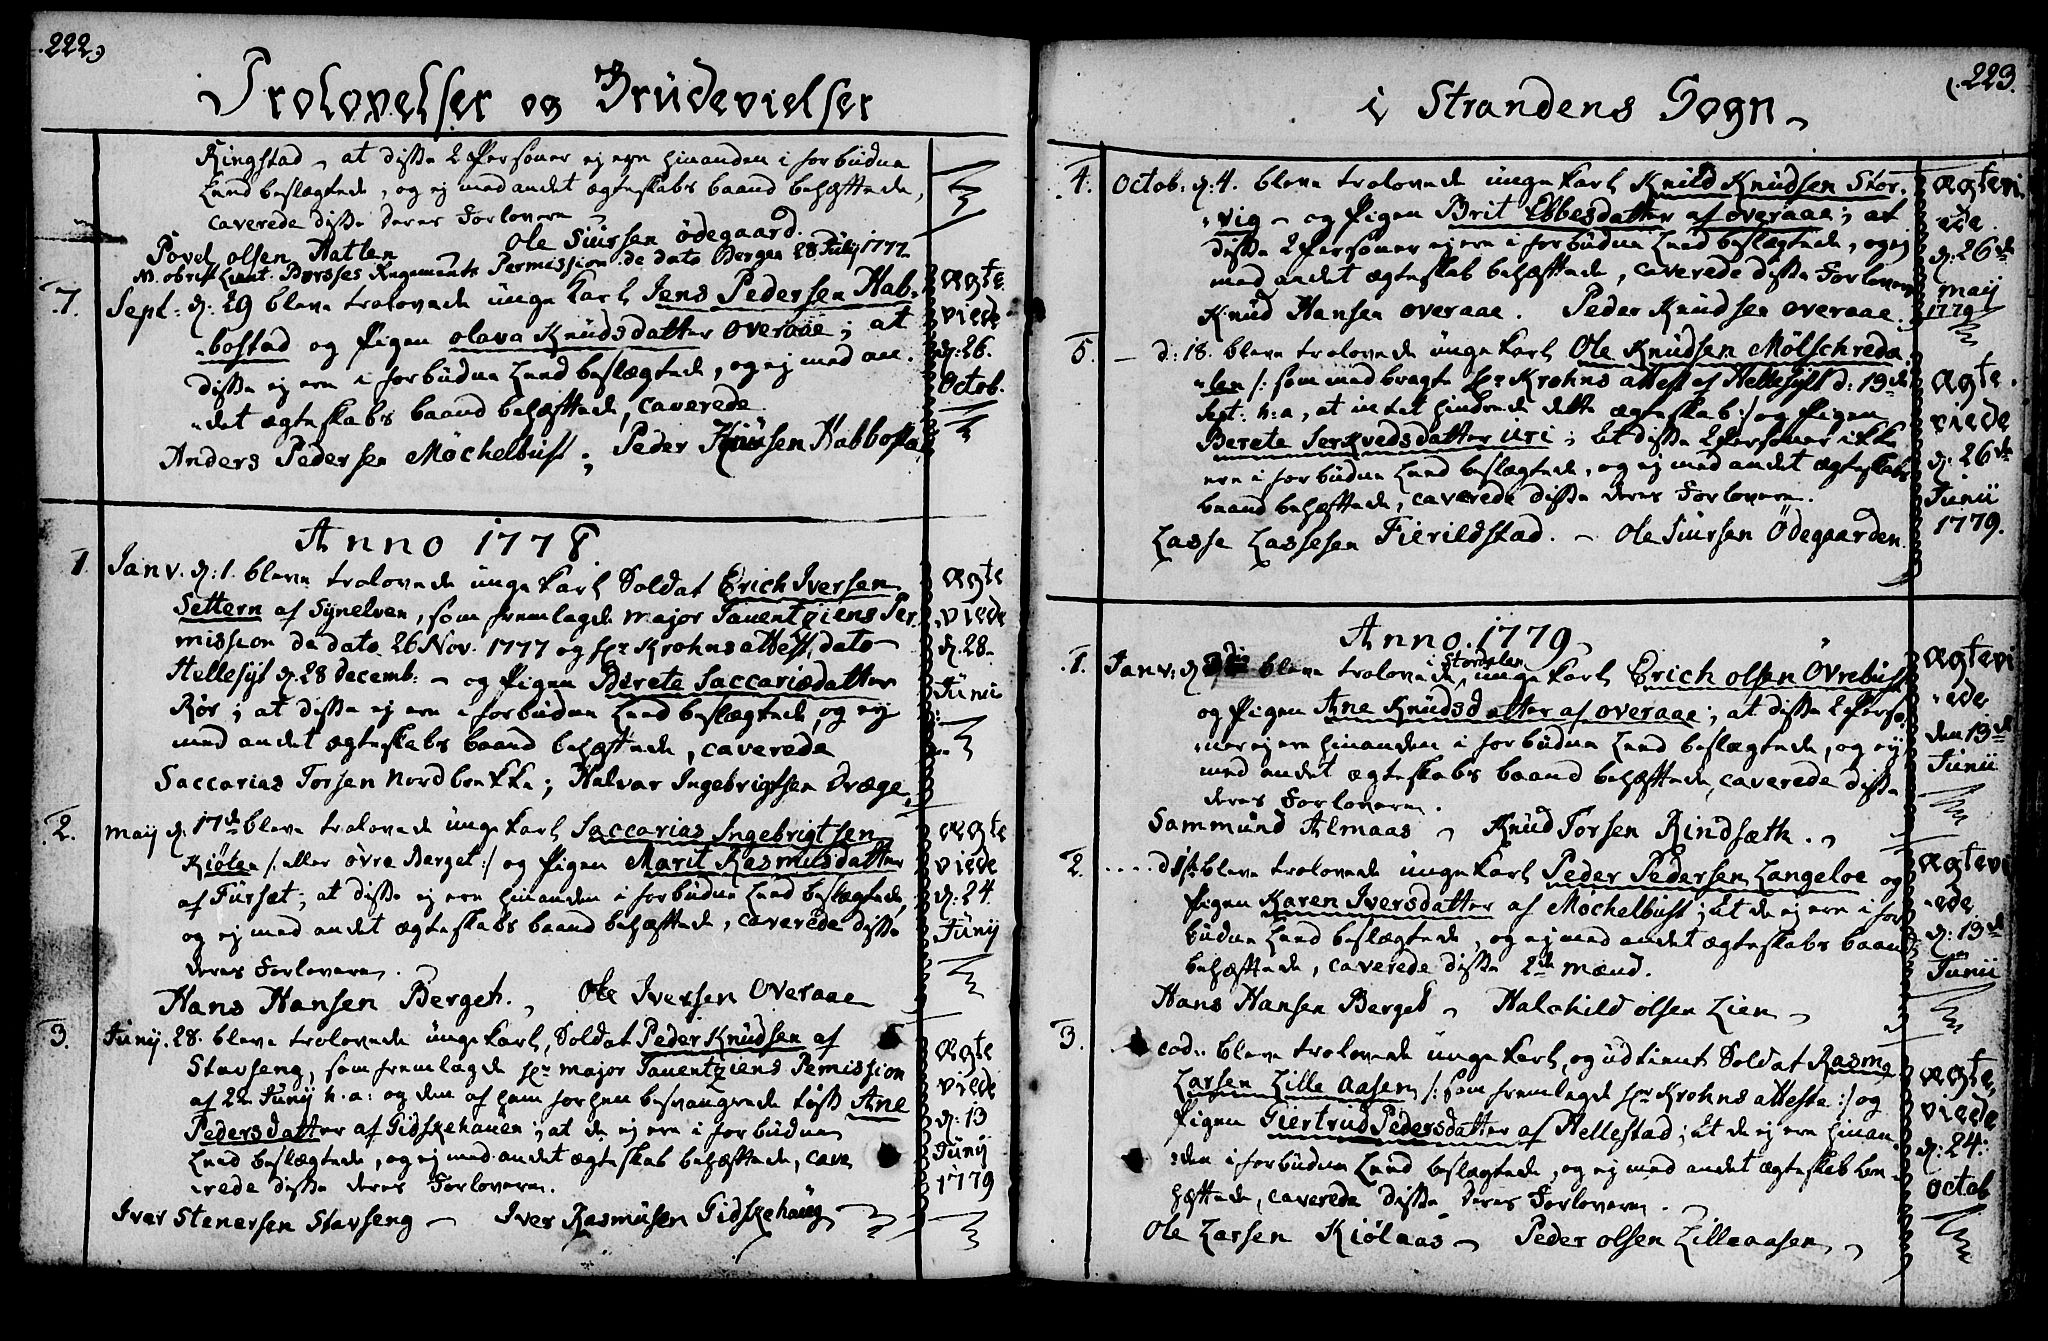 .222.
Trolovelser og Brüdevielser
Ringstad, at disse 2 Personer ej ere hinanden i forbüdne
Leed beslægtede, og ej med andet ægteskabs baand behæftede,
caverede disse deres Forlovere
Povel olsen Hatlen Ole Siursen ödegaard.
NB. obrist Lieut. Regements Permission de dato Bergen 28 Julij 1777
7. Sept: d: 29 bleve trolovede ünge Karl Jens Pedersen Hab-
bostad og Pigen olava Knüdsdatter overaae; at
disse ej ere i forbüdne Leed beslægtede, og ej med an-
det ægteskabs baand behæftede, caverede
Anders Pedersen Möchelbüst; Peder Knüsen Habbosta
Ægte
viede
d: 26.
Octob.
Anno 1778
1. Janv. d: 1. bleve trolovede ünge karl Soldat Erich Iversen
Settern af Synelven, som fremlagde major Tauentziens Per-
mission de dato 26 Nov. 1777 og Hr Krohns attest, dato
Hellesÿlt d. 28 decemb: og Pigen Berete Saccariædatter
Rör; at disse ej ere i forbüdne Leed beslægtede, og ej
med andet ægteskabs baand behæftede, caverede
Saccarias Torsen Nordbrekke; Halvar Ingebrigtsen Dræge
Ægte
viede
d. 28
Junii
2. maij d. 17de bleve trolovede unge karl Saccarias Ingebrigtsen
Kiölen /: eller övre Berget :/ og Pigen Marit Rasmüsdatter
af Fürset; at disse ej ere hinanden i forbüdne Leed beslægtede,
og ej med andet ægteskabs baand behæftede, caverede disse
deres Forlovere.
Hans Hansen Berget. Ole Iversen Overaae
Ægte
viede
d: 24.
Jünij
3. Junij. 28. bleve trolovede unge karl, Soldat Peder Knüdsen af
Stavseng, som fremlagde Hr major Tauentziens Pemission
af 22 Junij h. a: og den af ham forhen besvangrede tös Ane
Pedersdatter af Gidskehauen; at de ej ere i forbüdne
Leed beslægtede, og ej med andet ægteskab behæftede, cave
rede disse deres Forlovere.
Iver Stenersen Stavseng Iver Rasmüsen Gidskehaüg
Ægte
viede
d: 13
Junij
1779
.223.
i Strandens Sogn
4. Octob: d: 4. bleve trolovede unge karl Knüd Knüdsen Stor-
vig og Pigen Brit Ebbesdatter af overaae; at
disse 2 Personer ej ere i forbüdne Leed beslægtede, og ej
med andet ægteskab behæftede, caverede disse Forlovere
Knüd Hansen overaae. Peder Knüdsen overaae.
Ægtevi
ede
d: 26de
maij
1779
5. d: 18. bleve trolovede unge karl Ole Knüdsen Mölschreda
len /: som medbragte Hr Krohns attest af Hellesÿlt d: 13de
Sept: h: a, at intet hindrede dette ægteskab :/ og Pigen
Berete Serkvedsdatter üri; at disse 2 Personer ikke
ere i forbüdne Leed beslægtede, og ej med andet ægteskabs
baand behæftede, caverede disse deres Forlovere.
Lasse Lassesen Fierildstad. Ole Siursen Ödegaarden
Ægte
viede
d. 26de
Junii
1779.
Anno. 1779
1. Janv: d bleve trolovede i Stordalen unge karl Erich olsen Övrebüst
og Pigen Ane Knüdsdatter af overaae; at disse 2 Perso
ner ej ere hinanden i forbüdne Leed beslægtede, og ej
med andet ægteskabs baand behæftede, caverede disse
deres Forlovere.
Sammünd Almaas Knüd Torsen Rindsæth.
Ægtevi
ede
den 13de
Junii
2. bleve trolovede unge karl Peder Pedersen Langeloe og
Pigen Karen Iversdatter af Möchelbüst; at de ej ere i for
büdne Leed beslægtede, og ej med andet ægteskabs baand
behæftede, caverede disse 2de mænd.
Hans Hansen Berget Halchild olsen Lien
Ægtevi
ede
d: 13de
Junii
3. eod: bleve trolovede unge karl, og üdtient Soldat Rasms
Larsen Lille aasen /: som fremlagde Hr Krohns atteste :/ og
Pigen Giertrud Pedersdatter af Hellestad; at de ej ere hinan
den i forbüdne Leed beslægtede, og ej med andet ægteskab be
hæftede, caverede disse deres Forlovere.
Ole Larsen Kiölaas Peder olsen Lilleaasen
Ægte
viede
d: 24:
octob